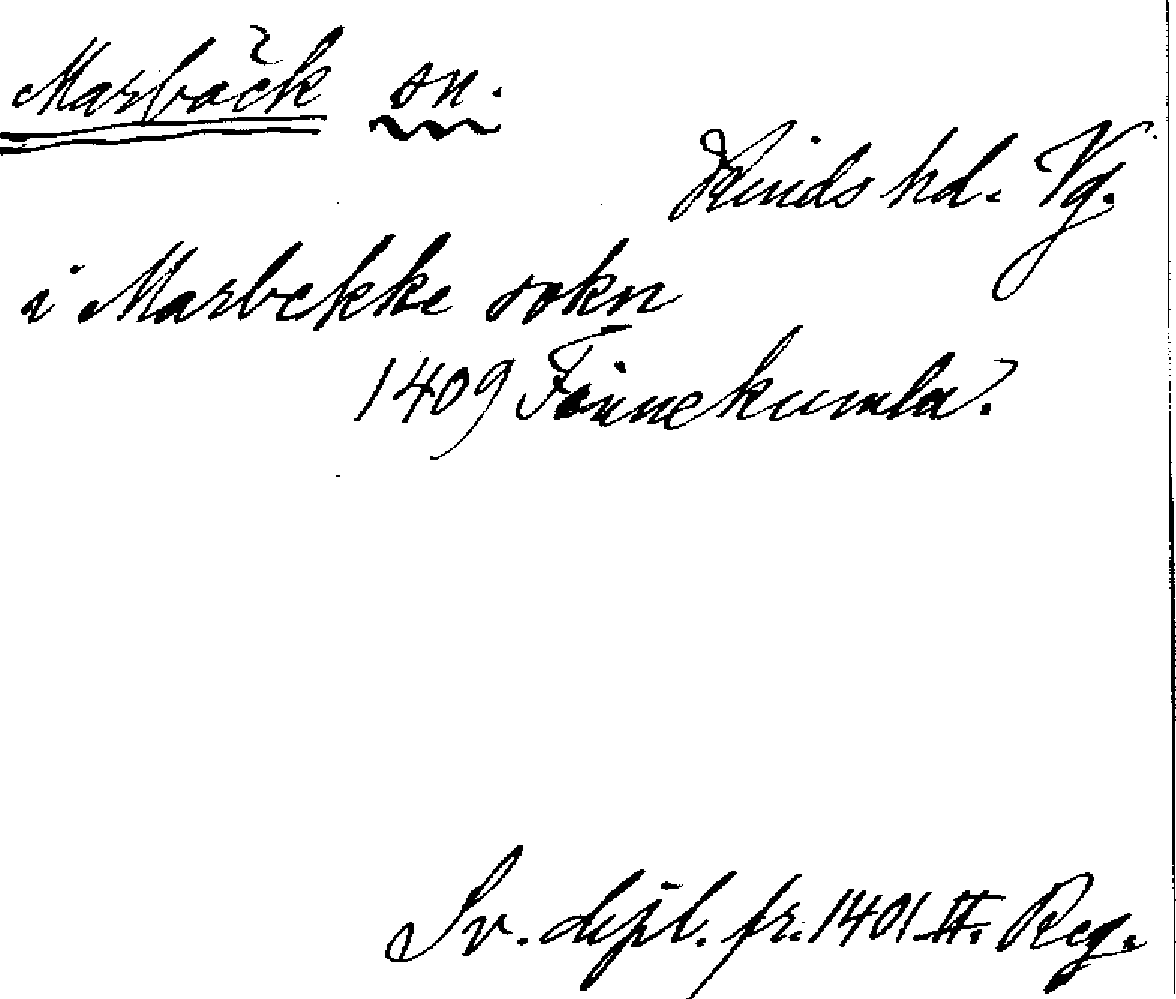 Marbäck sn.
Kinds hd. Vg.
i Marbekke sokn
1409 Finnekumla?
Sv. dipl. fr. 1401 II. Reg.